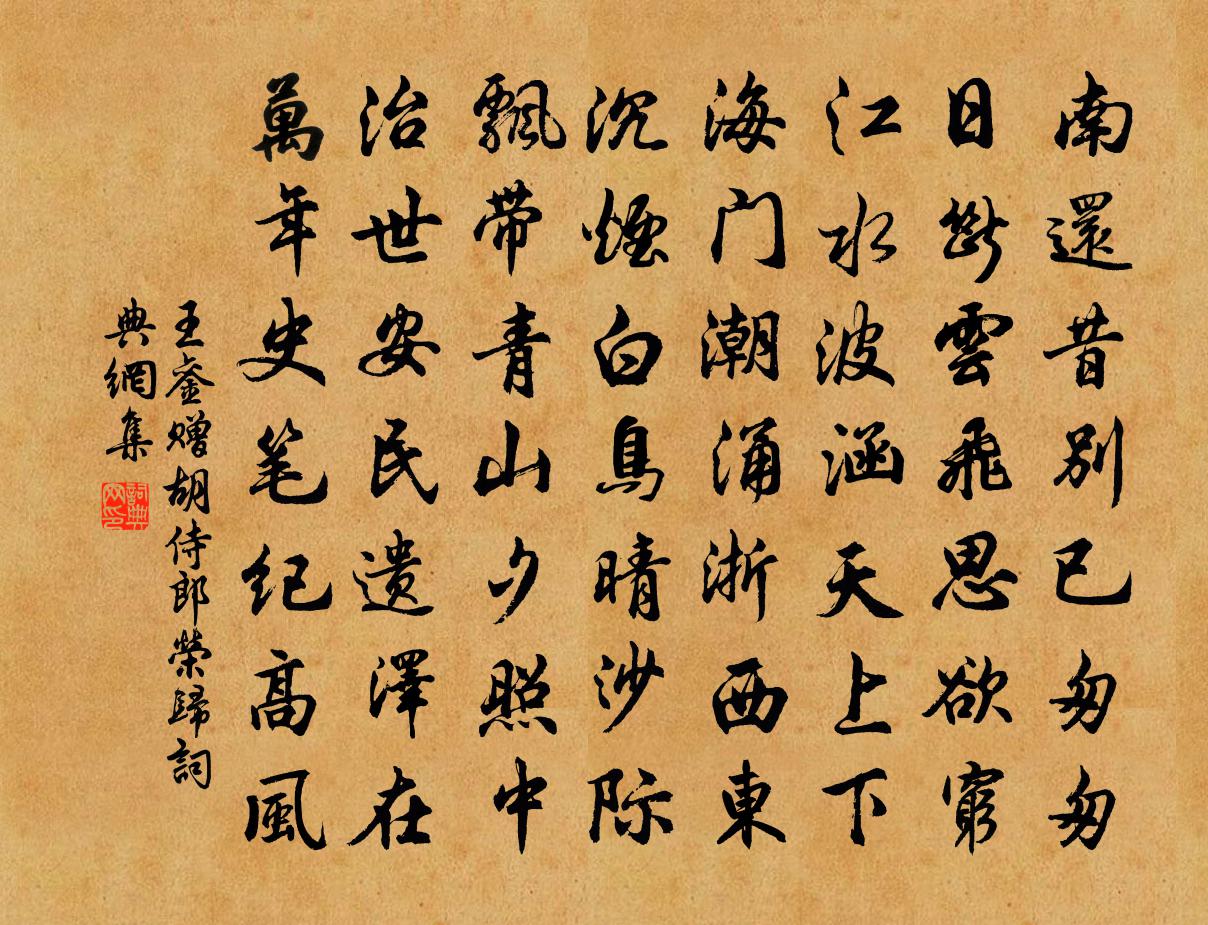 南還昔別已匆匆
日斷雲飛思欲窮
江水波涵天上下
海门潮涌浙西東
沉煙白鳥晴沙际
飄带青山夕照中
治世安民遗澤在
萬年史笔纪高風
王崟赠胡侍郎榮歸詞
典網集
詞典网印